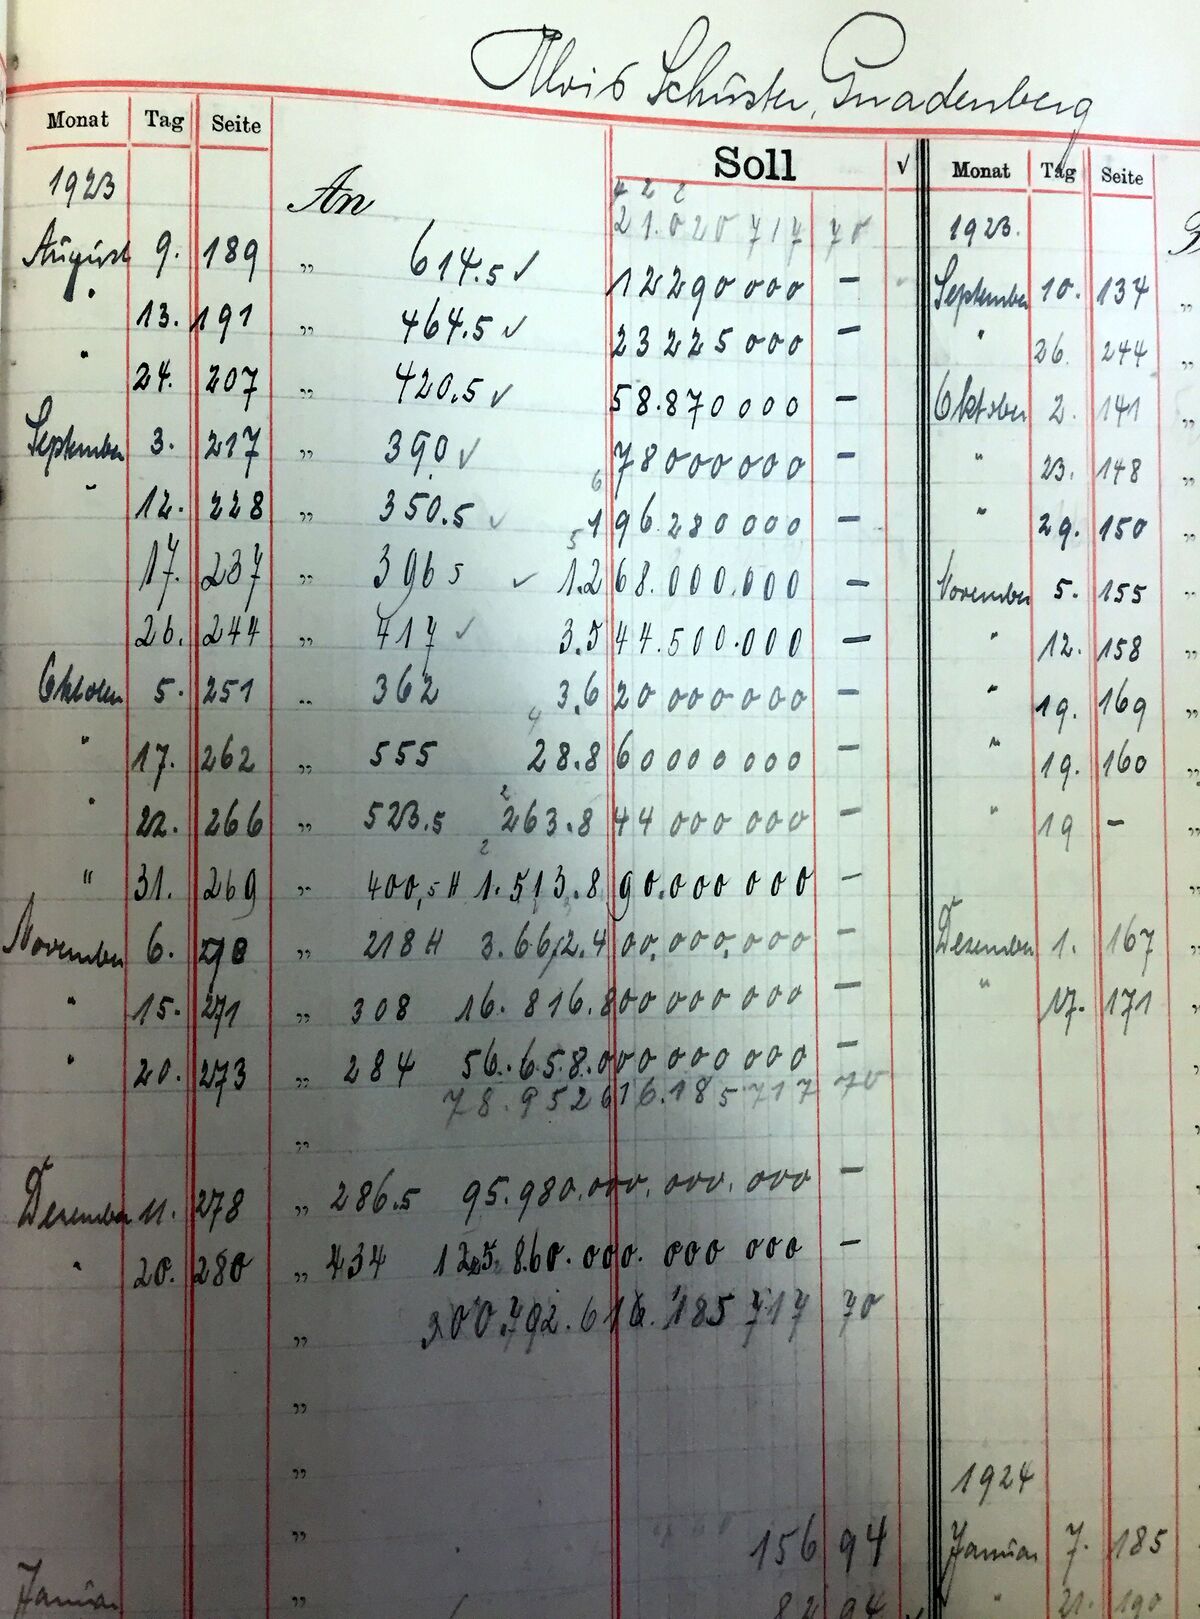 Alois Schuster, Gnadenberg
Monat Tag Seite Soll √ Monat Tag Seite
1923 An 21.020717 70 1923.
August 9. 189 " 614.5 ✓ 12290000 — September 10. 134 "
" 13. 191 " 464.5 ✓ 23225000 — " 26. 244 "
" 24. 207 " 420.5 ✓ 58.870000 — Oktober 2. 141 "
September 3. 217 " 390 ✓ 78000000 — " 23. 148 "
" 12. 228 " 350.5 ✓ 196.280000 — " 29. 150 "
17. 237 " 396 5 ✓ 1.268.000.000 — November 5. 155 "
26. 244 " 717 ✓ 3.544.500.000 — " 12. 158 "
Oktober 5. 251 " 362 3.620000000 — " 19. 169 "
" 17. 262 " 555 28.860000000 — " 19. 160 "
" 22. 266 " 523.5 263.844000000 — " 19 —
" 31. 269 " 400,5 H 1.513.890.000000 — "
November 6. " 218 H 3.662.400.000.000 — Dezember 1. 167 "
" 15. 271 " 308 16.816.800000000 — " 17. 171 "
" 20. 273 " 284 56.658.000000000 —
78.952616.185.717 70
"
Dezember 11. 278 " 286.5 95.980.000.000.000 —
" 20. 280 " 434 125.860.000.000 000 —
" 300.792.616.185 717 70
"
" 1924
" 156 94 Januar 7. 185
Januar 82 94 " 21. 190